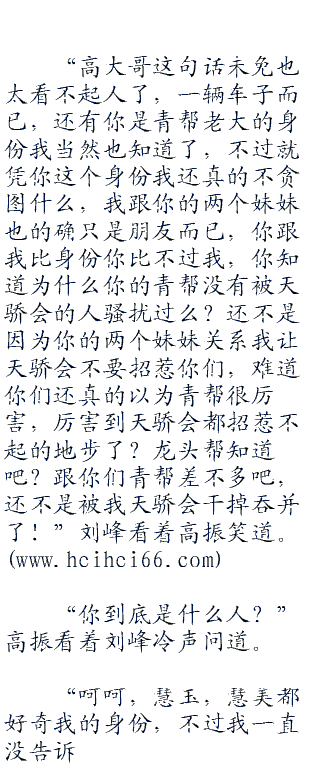 “高大哥这句话未免也
太看不起人了，一辆车子而
已，还有你是青帮老大的身
份我当然也知道了，不过就
凭你这个身份我还真的不贪
图什么，我跟你的两个妹妹
也的确只是朋友而已，你跟
我比身份你比不过我，你知
道为什么你的青帮没有被天
骄会的人骚扰过么？还不是
因为你的两个妹妹关系我让
天骄会不要招惹你们，难道
你们还真的以为青帮很厉
害，厉害到天骄会都招惹不
起的地步了？龙头帮知道
吧？跟你们青帮差不多吧，
还不是被我天骄会干掉吞并
了！”刘峰看着高振笑道。
(www.hcihci66.com)
“你到底是什么人？”
高振看着刘峰冷声问道。
“呵呵，慧玉，慧美都
好奇我的身份，不过我一直
没告诉